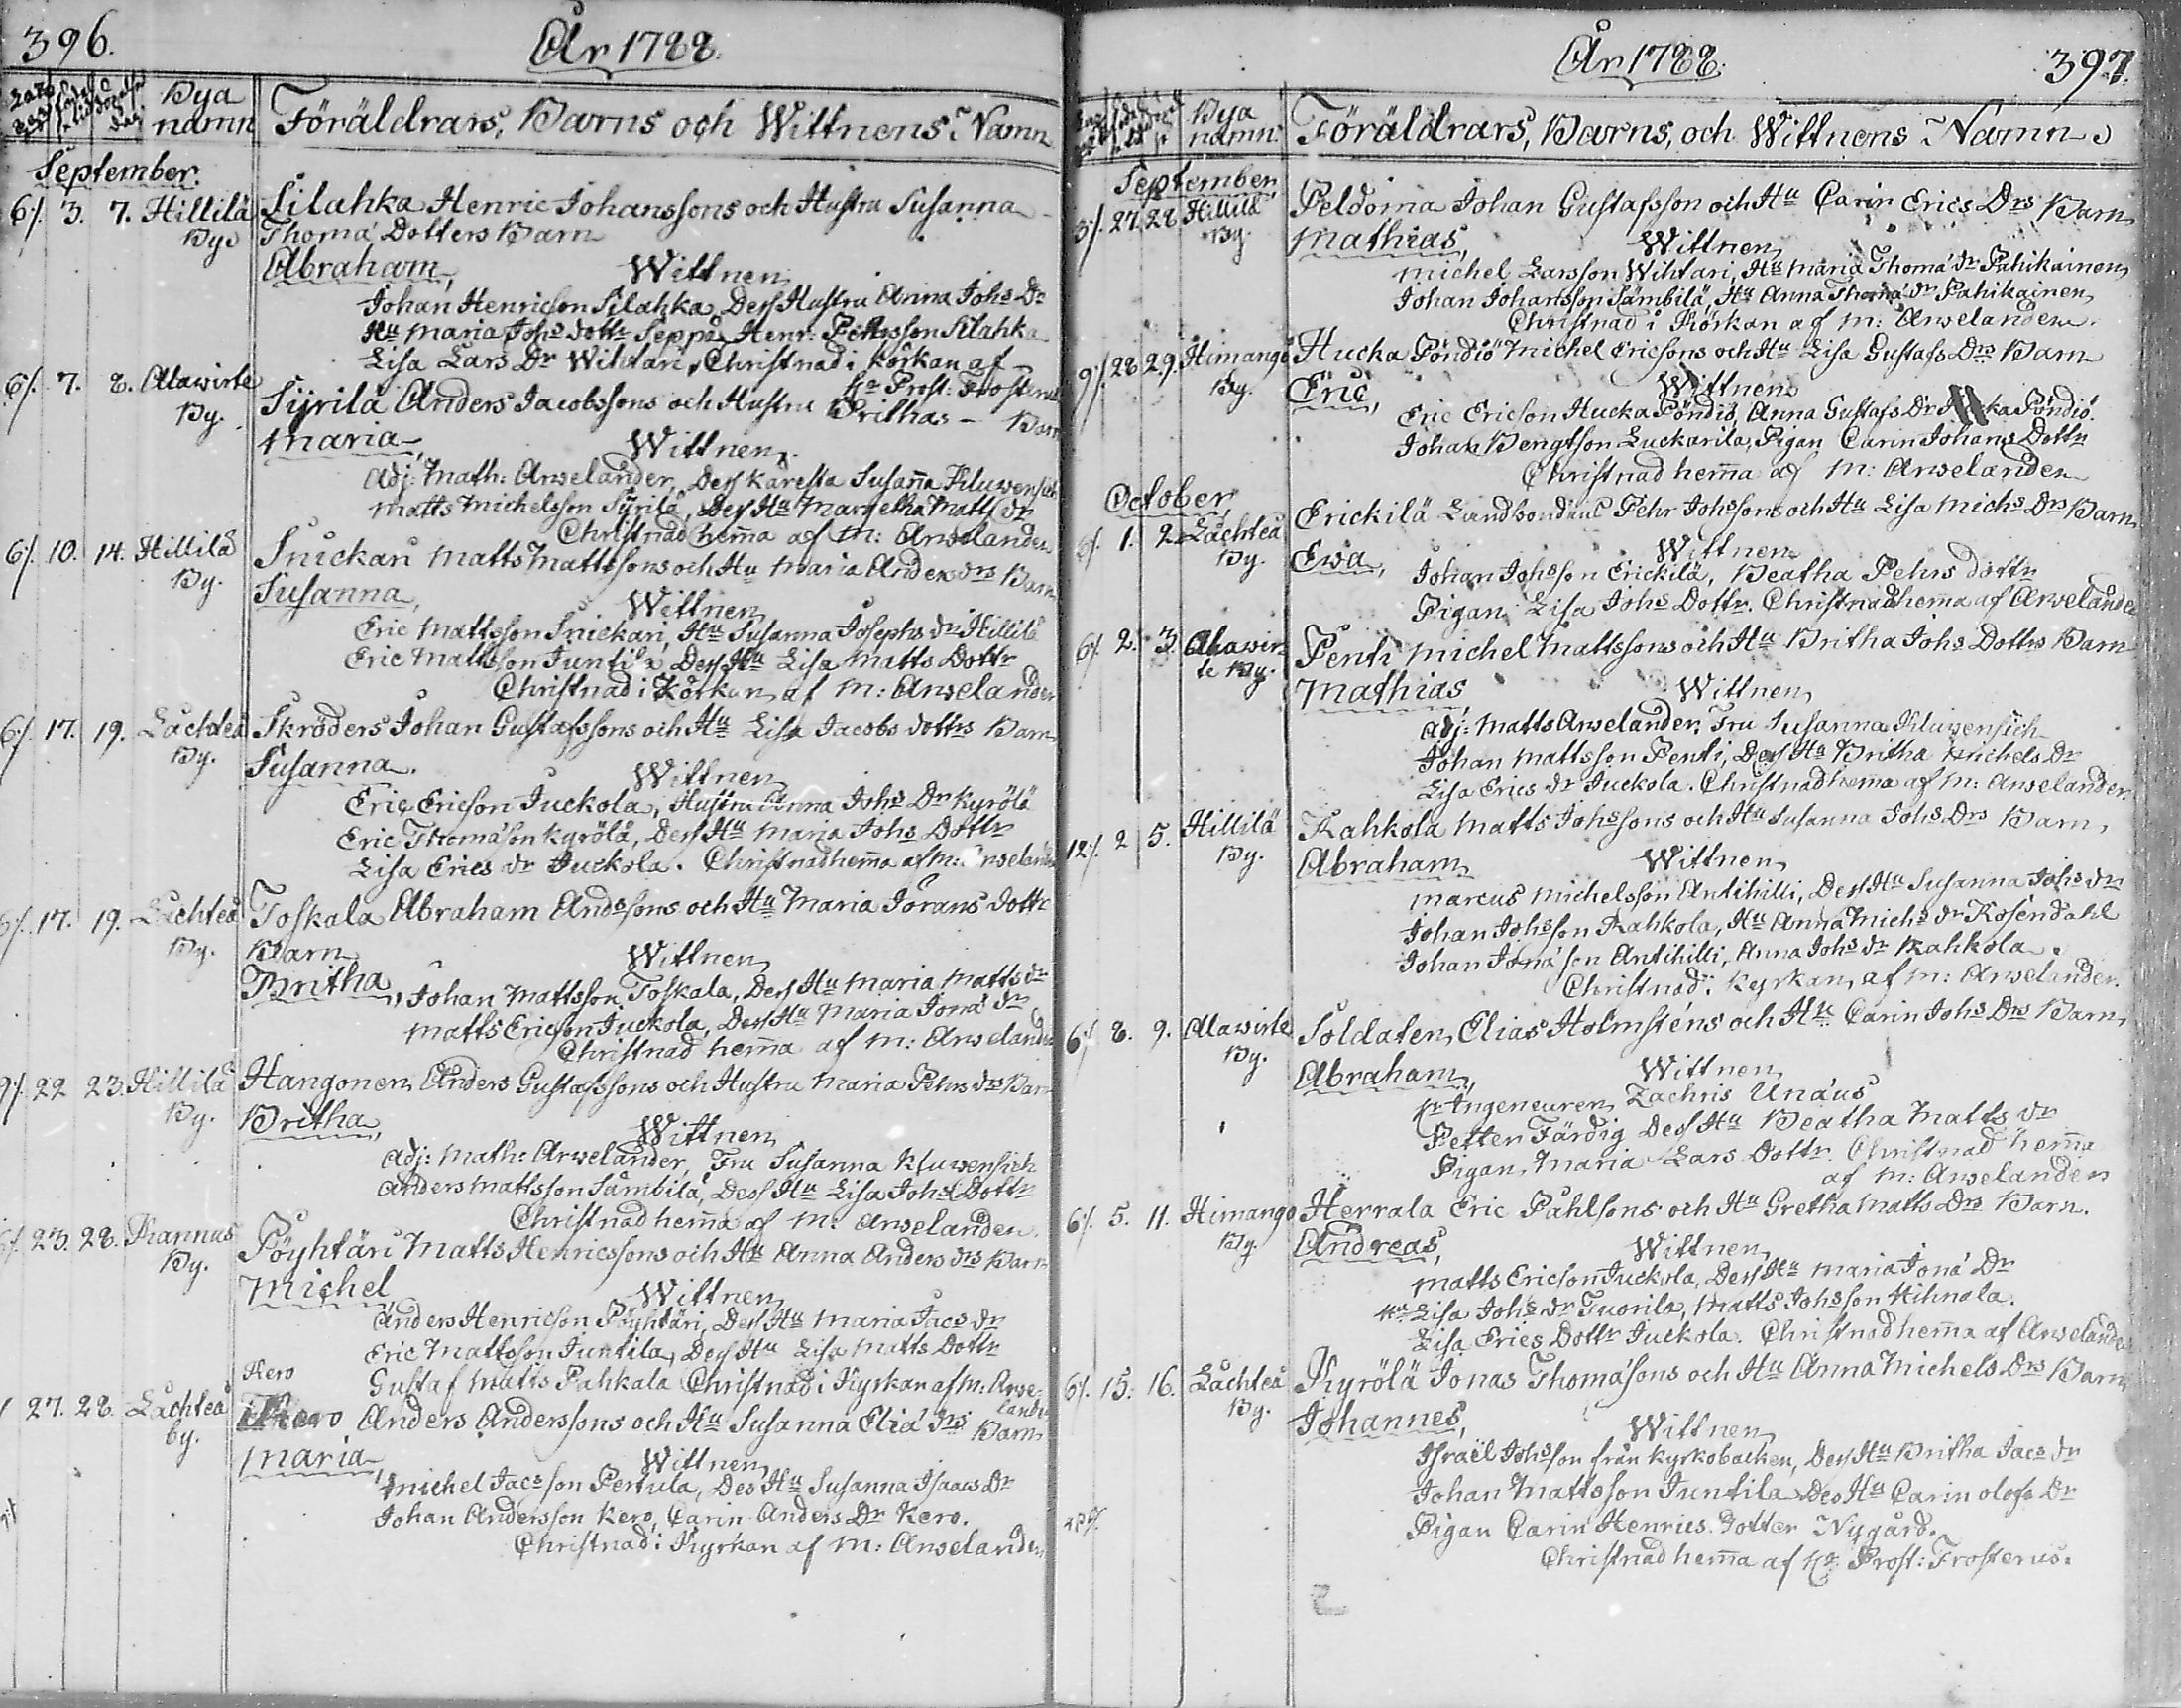 396.
År 1788.
Bya
namn
Föräldrars, Barns och Wittnens Namn
September.
6/. 3. 7. Hillilä Silahka Henric Johanssons och Hustru Susanna
By Thomä Dotters Barn
Abraham, Wittnen
Johan Henricson Silahka, Dess Hustru Anna Johs Dr
Hu Maria Johs dottr Seppä, Henr: Pettersson Silahka
Lisa Lars Dr Wihtari, Christnad i Körkan af
Hr Prost: Frosterus
6/. 7. 8. Alawirte Syrilä Anders Jacobssons och Hustru Brithas - Barn
By.
Maria, Wittnen
Adj: Math: Arwelander, Dess Käresta Susanna Kluwensich
Matts Michelsson Syrilä, Dess Hu Margetha Matts dr
Christnad hema af M: Arwelander
6/. 10. 14. Hillilä Snickari Matts Mattssons och Hu Maria Anders drs Barn
By.
Susanna, Wittnen
Eric Mattsson Snickari, Hu Susanna Josephs dr Hillilä
Eric Mattsson Juntila, Dess Hu Lisa Matts Dottr
Christnad i Körkan af M: Arwelander
6/. 17. 19. Lachteå Skröders Johan Gustafssons och Hu Lisa Jacobs dotts Barn
By.
Susanna. Wittnen
Eric Ericson Juckola, Hustru Anna Johs Dr Kyrölä
Eric Thomäson Kyrölä, Dess Hu Maria Johs Dottr
Lisa Erics dr Juckola. Christnad hema af M: Arwelander
6/. 17. 19. Lachteå Toskala Abraham Andssons och Hu Maria Jörans dottr
By. Barn Wittnen
Britha, Johan Mattsson Toskala, Dess Hu Maria Matts dr
Matts Ericson Juckola, Dess Hu Maria Jonä dr
Christnad hema af M: Arwelander
9/. 22 23. Hillilä Hangonen Anders Gustafssons och Hustru Maria Pehrs drs Barn
By.
Britha, Wittnen
Adj: Math: Arwelander, Fru Susanna Kluwensich
Anders Mattsson Sämbilä, Dess Hu Lisa Johs Dottr
Christnad hema af M: Arwelander
6/. 23. 28. Kannus Pöyhtäri Matts Henricssons och Hu Anna Anders drs Barn
By.
Michel, Wittnen
Anders Henricson Pöyhtäri, Dess Hu Maria Jacs dr
Eric Mattsson Juntila, Dess Hu Lisa Matts Dottr
Gustaf Matts Pahkala Christnad i Kyrkan af M: Arwe-
lander
Kero
27. 28. Lachteå Kero Anders Anderssons och Hu Susanna Eliä drs Barn
by.
Maria, Wittnen
Michel Jacsson Pertula, Des Hu Susanna Isaacs Dr
Johan Andersson Kero, Carin Anders Dr Kero.
Christnad i Kyrkan af M: Arwelander
År 1788.
397.
Bya
namn.
Föräldrars, Barns, och Wittnens Namn
September,
3/. 27. 28. Hillilä Peldoma Johan Gustafsson och Hu Carin Erics Drs Barn
By.
Mathias, Wittnen
Michel Larsson Wihtari, Hu Maria Thomä dr Pahikainen
Johan Johansson Sämbilä, Hu Anna Thomä dr Pahikainen
Christnad i Körkan af M: Arwelander.
9/. 28 29. Himango Hucka Pöndiö Michel Ericsons och Hu Lisa Gustafs Drs Barn
By.
Eric, Wittnen
Eric Ericson Hucka Pöndiö, Anna Gustafs Dr Hucka Pöndiö.
Johan Bengtson Luckarila, Pigan Carin Johans Dottr
Christnad hema af M: Arwelander
October,
6/. 1. 2. Lachteå Erickilä Landbonden Pehr Johssons och Hu Lisa Michs Drs Barn
By.
Ewa, Wittnen
Johan Johsson Erickilä, Beatha Pehrs dottr
Pigan Lisa Johs Dottr. Christnad hema af Arwelander
6/. 2. 3. Alawir- Penti Michel Mattssons och Hu Britha Johs Dotts Barn
te By.
Mathias Wittnen
Adj: Matts Arwelander, Fru Susanna Kluwensich
Johan Mattsson Penti, Dess Hu Britha Michels Dr
Lisa Erics dr Juckola. Christnad hema af M: Arwelander.
12/. 2 5. Hillilä Kahkola Matts Johssons och Hu Susanna Johs Drs Barn,
By.
Abraham, Wittnen
Marcus Michelsson Antihilli, Dess Hu Susanna Johs dr
Johan Johsson Kahkola, Hu Anna Michs dr Rosendahl
Johan Jonäson Antihilli, Anna Johs dr Kahkola.
Christnad i Kyrkan, af M: Arwelander.
6/. 8. 9. Alawirte Soldaten Elias Holmsténs och Hu Carin Johs Drs Barn
By.
Abraham, Wittnen
Hr Ingeneuren Zachris Unæus
Petter Färdig Dess Hu Beatha Matts dr
Pigan Maria Lars Dottr. Christnad hema
af M: Arwelander
6/. 5. 11. Himango Herrala Eric Pahlsons och Hu Gretha Matts Drs Barn.
By.
Andreas, Wittnen
Matts Ericson Juckola, Dess Hu Maria Jonä Dr
Hu Lisa Johs dr Tuorila, Matts Johsson Hihnala.
Lisa Erics Dottr Juckola. Christnad hema af Arwelander
6/. 15. 16. Lachteå Kyrölä Jonas Thomäsons och Hu Anna Michels Drs Barn
By.
Johannes, Wittnen
Israël Johsson från Kyrkobacken, Dess Hu Britha Jacs dr
Johan Mattsson Juntila Des Hu Carin Olofs Dr
Pigan Carin Henrics Dotter Nygård.
Christnad hema af Hr Prost: Frosterus.